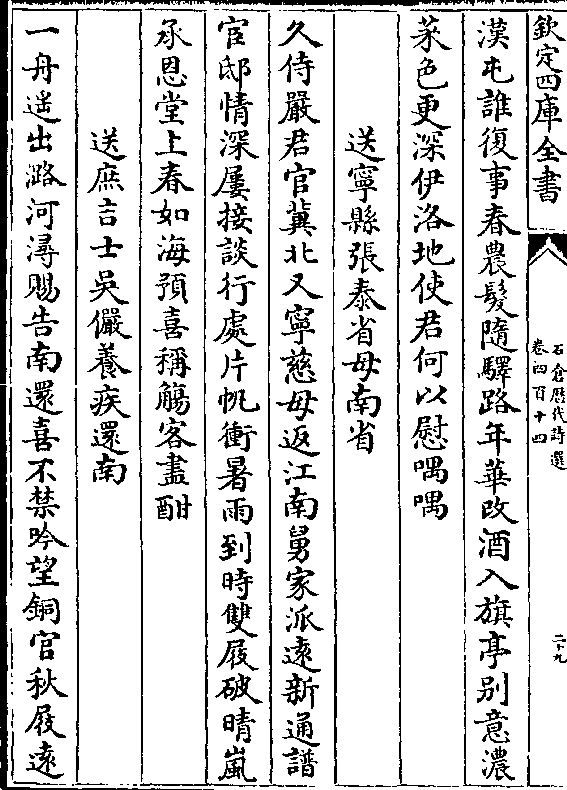 欽定四庫全書
石倉歷代詩選
卷四百十四
二十九
漢屯誰復事春農髮隨驛路年華改酒入旗亭别意濃
菜色更深伊洛地使君何以慰喁喁
送寧縣張泰省母南省
久侍嚴君官冀北又寧慈母返江南舅家派逺新通譜
宦邸情深屢接談行處片帆衝暑雨到時雙屐破晴嵐
承恩堂上春如海預喜稱觴客盡酣
送庶吉士吳儼養疾還南
一舟遥出潞河潯賜告南還喜不禁吟望銅官秋屐逺